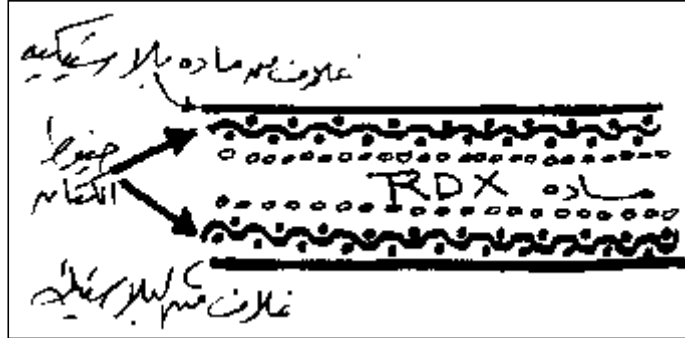 غلاف من ماده بلاستيكيه
خيوط
الكتان
مادة RDX
غلاف من البلاستيك